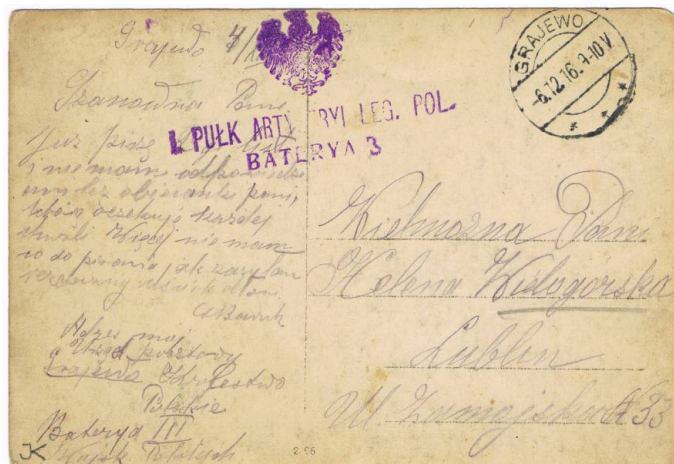 Grajewo 4/
Szanowna Pani
Już piszę
i nie mam odpowiedzi
ani też obiecanki pani,
którą oczekuję każdej
chwili Więcej nie mam
co do pisania jak zasyłam
serdeczny uścisk dłoni
Adres mój
Urząd pocztowy
Grajewo Królestwo
Polskie
Baterya III
Wojsk Polskich
JK
I. PUŁK ARTY RYI LEG. POL.
BATERYA 3
GRAJEWO
-6.12.16. 9-10V
Wielmożna Pani
Helena Wielogórska
Lublin
Ul. Zamojska № 33